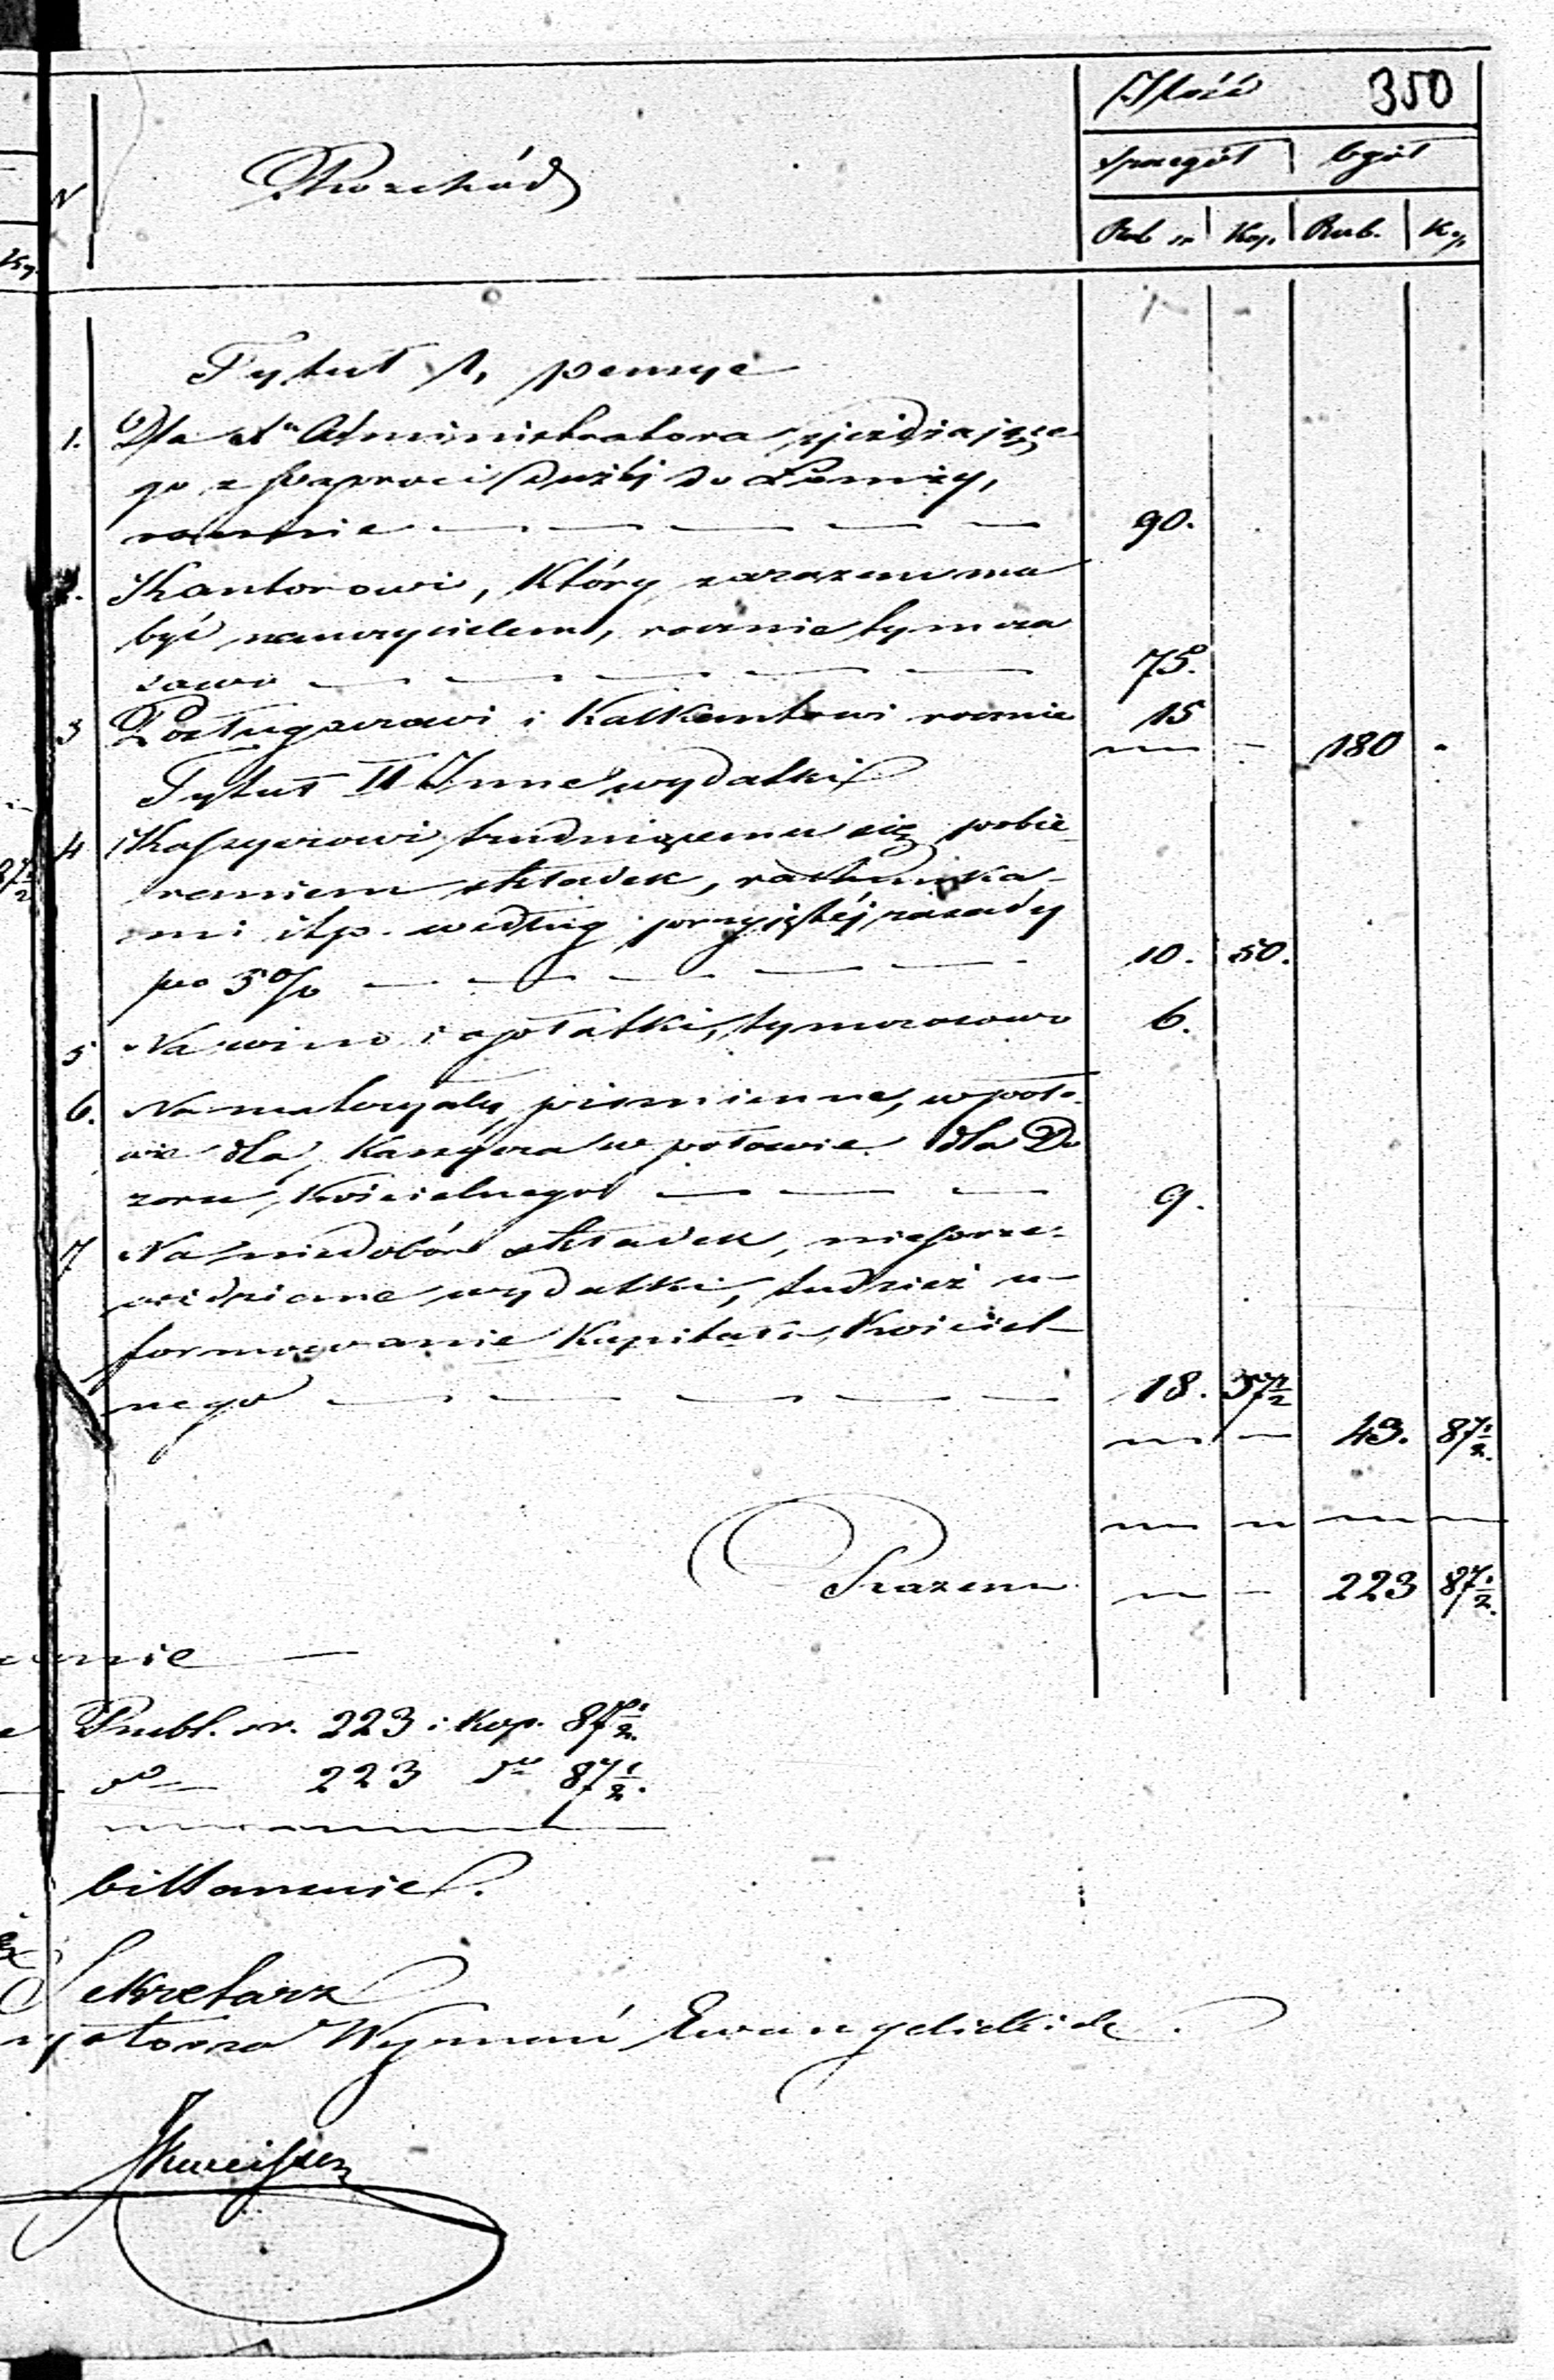 Ilość 350
szczegół ogół
N Rozchód
Rub sr Kop. Rub. Kop.
Kop.
Tytuł I, pensye
1. Dla Administratora zjeżdzające
go z Paproci Dużéj do Łomży,
rocznie — — — — — 90.
2. Kantorowi, który zarazem ma
być nauczycielem, rocznie tymcza
sowo — — — — — 75.
3 Posługaczowi i Kalkantowi rocznie 15
— — 180 .
Tytuł II Inne wydatki
4 Kassyerowi trudniącemu się pobie
raniem składek, rachunka-
mi itp. według przyjętéj zasady
po 5% — — — — — 10. 50.
5 Na wino i opłatki, tymczasowo 6.
6. Na materyały piśmienne, w poło-
wie dla Kassyera w połowie dla Do
zoru Kościelnego — — — 9.
7 Na niedobór składek, nieprze-
widziane wydatki, tudzież u-
formowanie Kapitału Kościel-
nego — — — — — 18. 37½
— — 43. 87½.
— — — —
Razem — — 223 87½.
Rubl. sr. 223 i Kop. 87½.
do — 223 do 87½.
billansuie.
Sekretarz
Wyznań Ewangelickich.